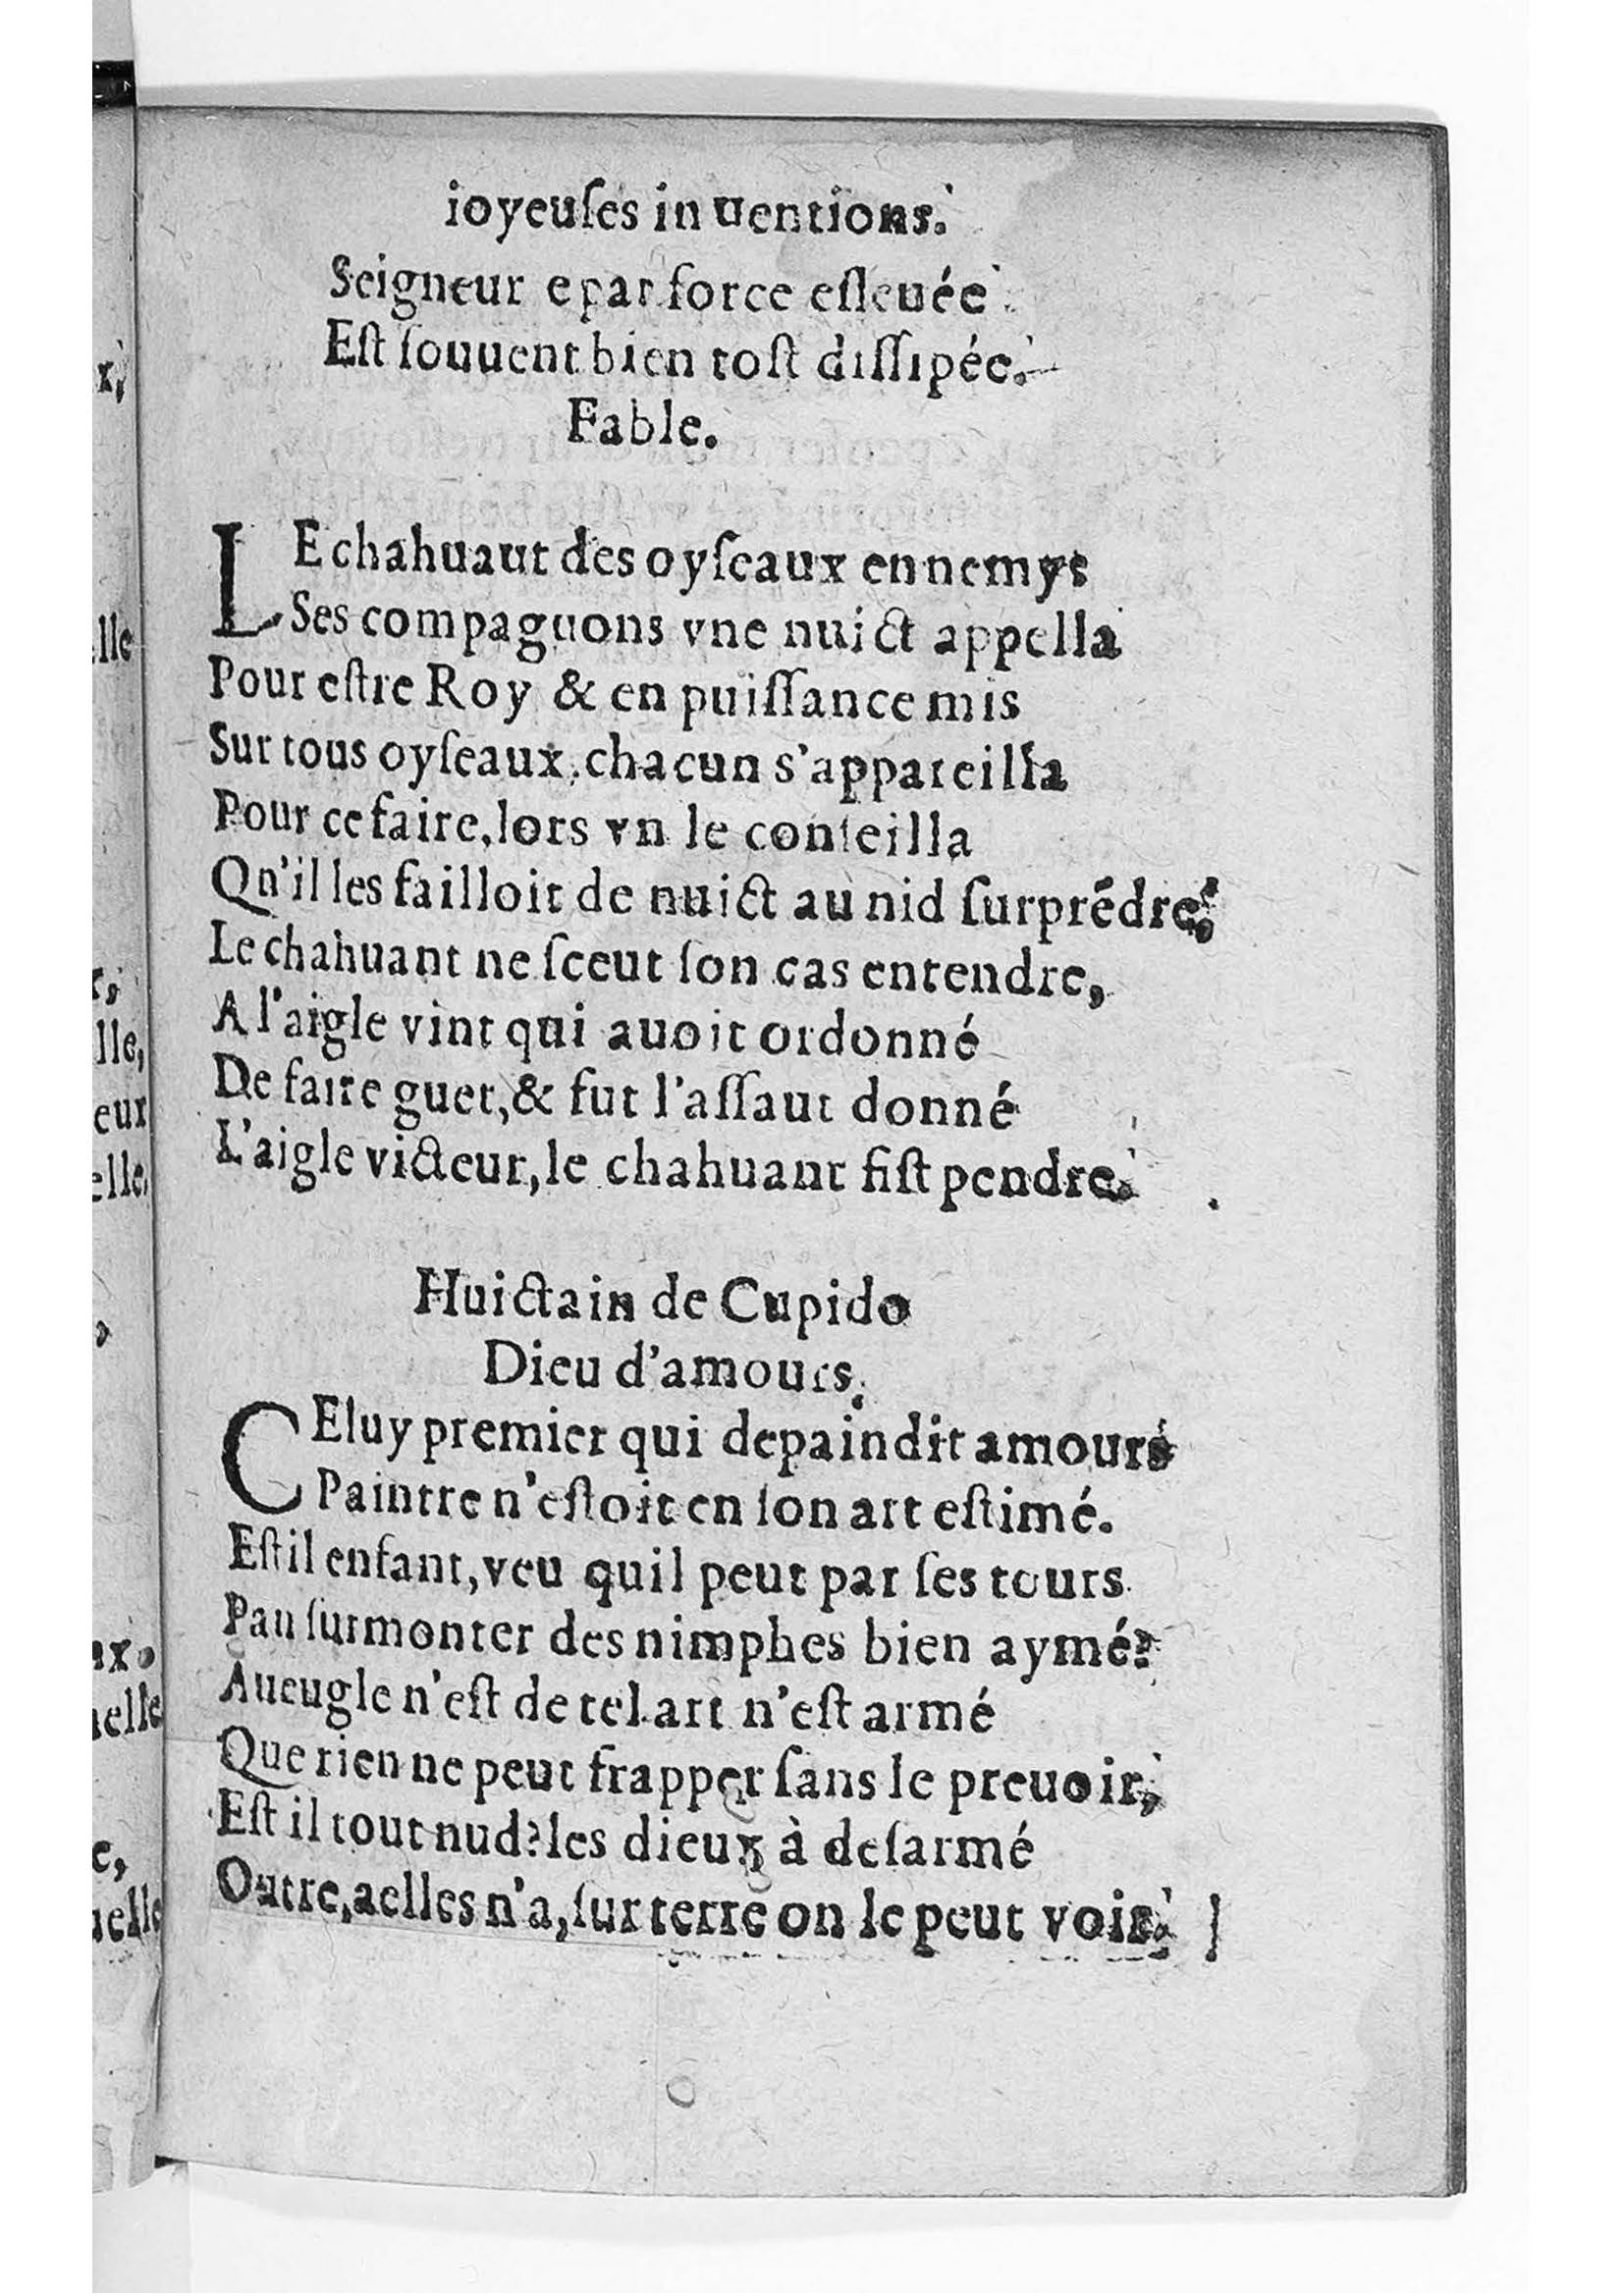 ioyeuſes in uentions.
Seigneur e par force eſleuée
Eſt ſouuent bien toſt diſſipée.
Fable.
LE chahuaut des oyſeaux ennemys
Ses compaguons vne nuict appella
Pour eſtre Roy & en puiſſance mis
Sur tous oyſeaux, chacun s'appareilla
Pour ce faire, lors vn le conſeilla
Qn'il les failloit de nuict au nid ſurprēdre,
Le chahuant ne ſceut ſon cas entendre,
A l'aigle vint qui auoit ordonné
De faire guet, & fut l'aſſaut donné
L'aigle victeur, le chahuant fiſt pendre.
Huictain de Cupido
Dieu d'amours.
CEluy premier qui depaindit amours
Paintre n'eſtoit en ſon art eſtimé.
Eſt il enfant, veu quil peut par ſes tours
Pan ſurmonter des nimphes bien aymé?
Aueugle n'eſt de tel art n'eſt armé
Que rien ne peut frapper ſans le preuoir,
Eſt il tout nud? les dieux à deſarmé
Outre, aelles n'a, ſur terre on le peut voir.
x,
lle
r,
lle,
eur
elle.
ux.
uelle
e,
uelle